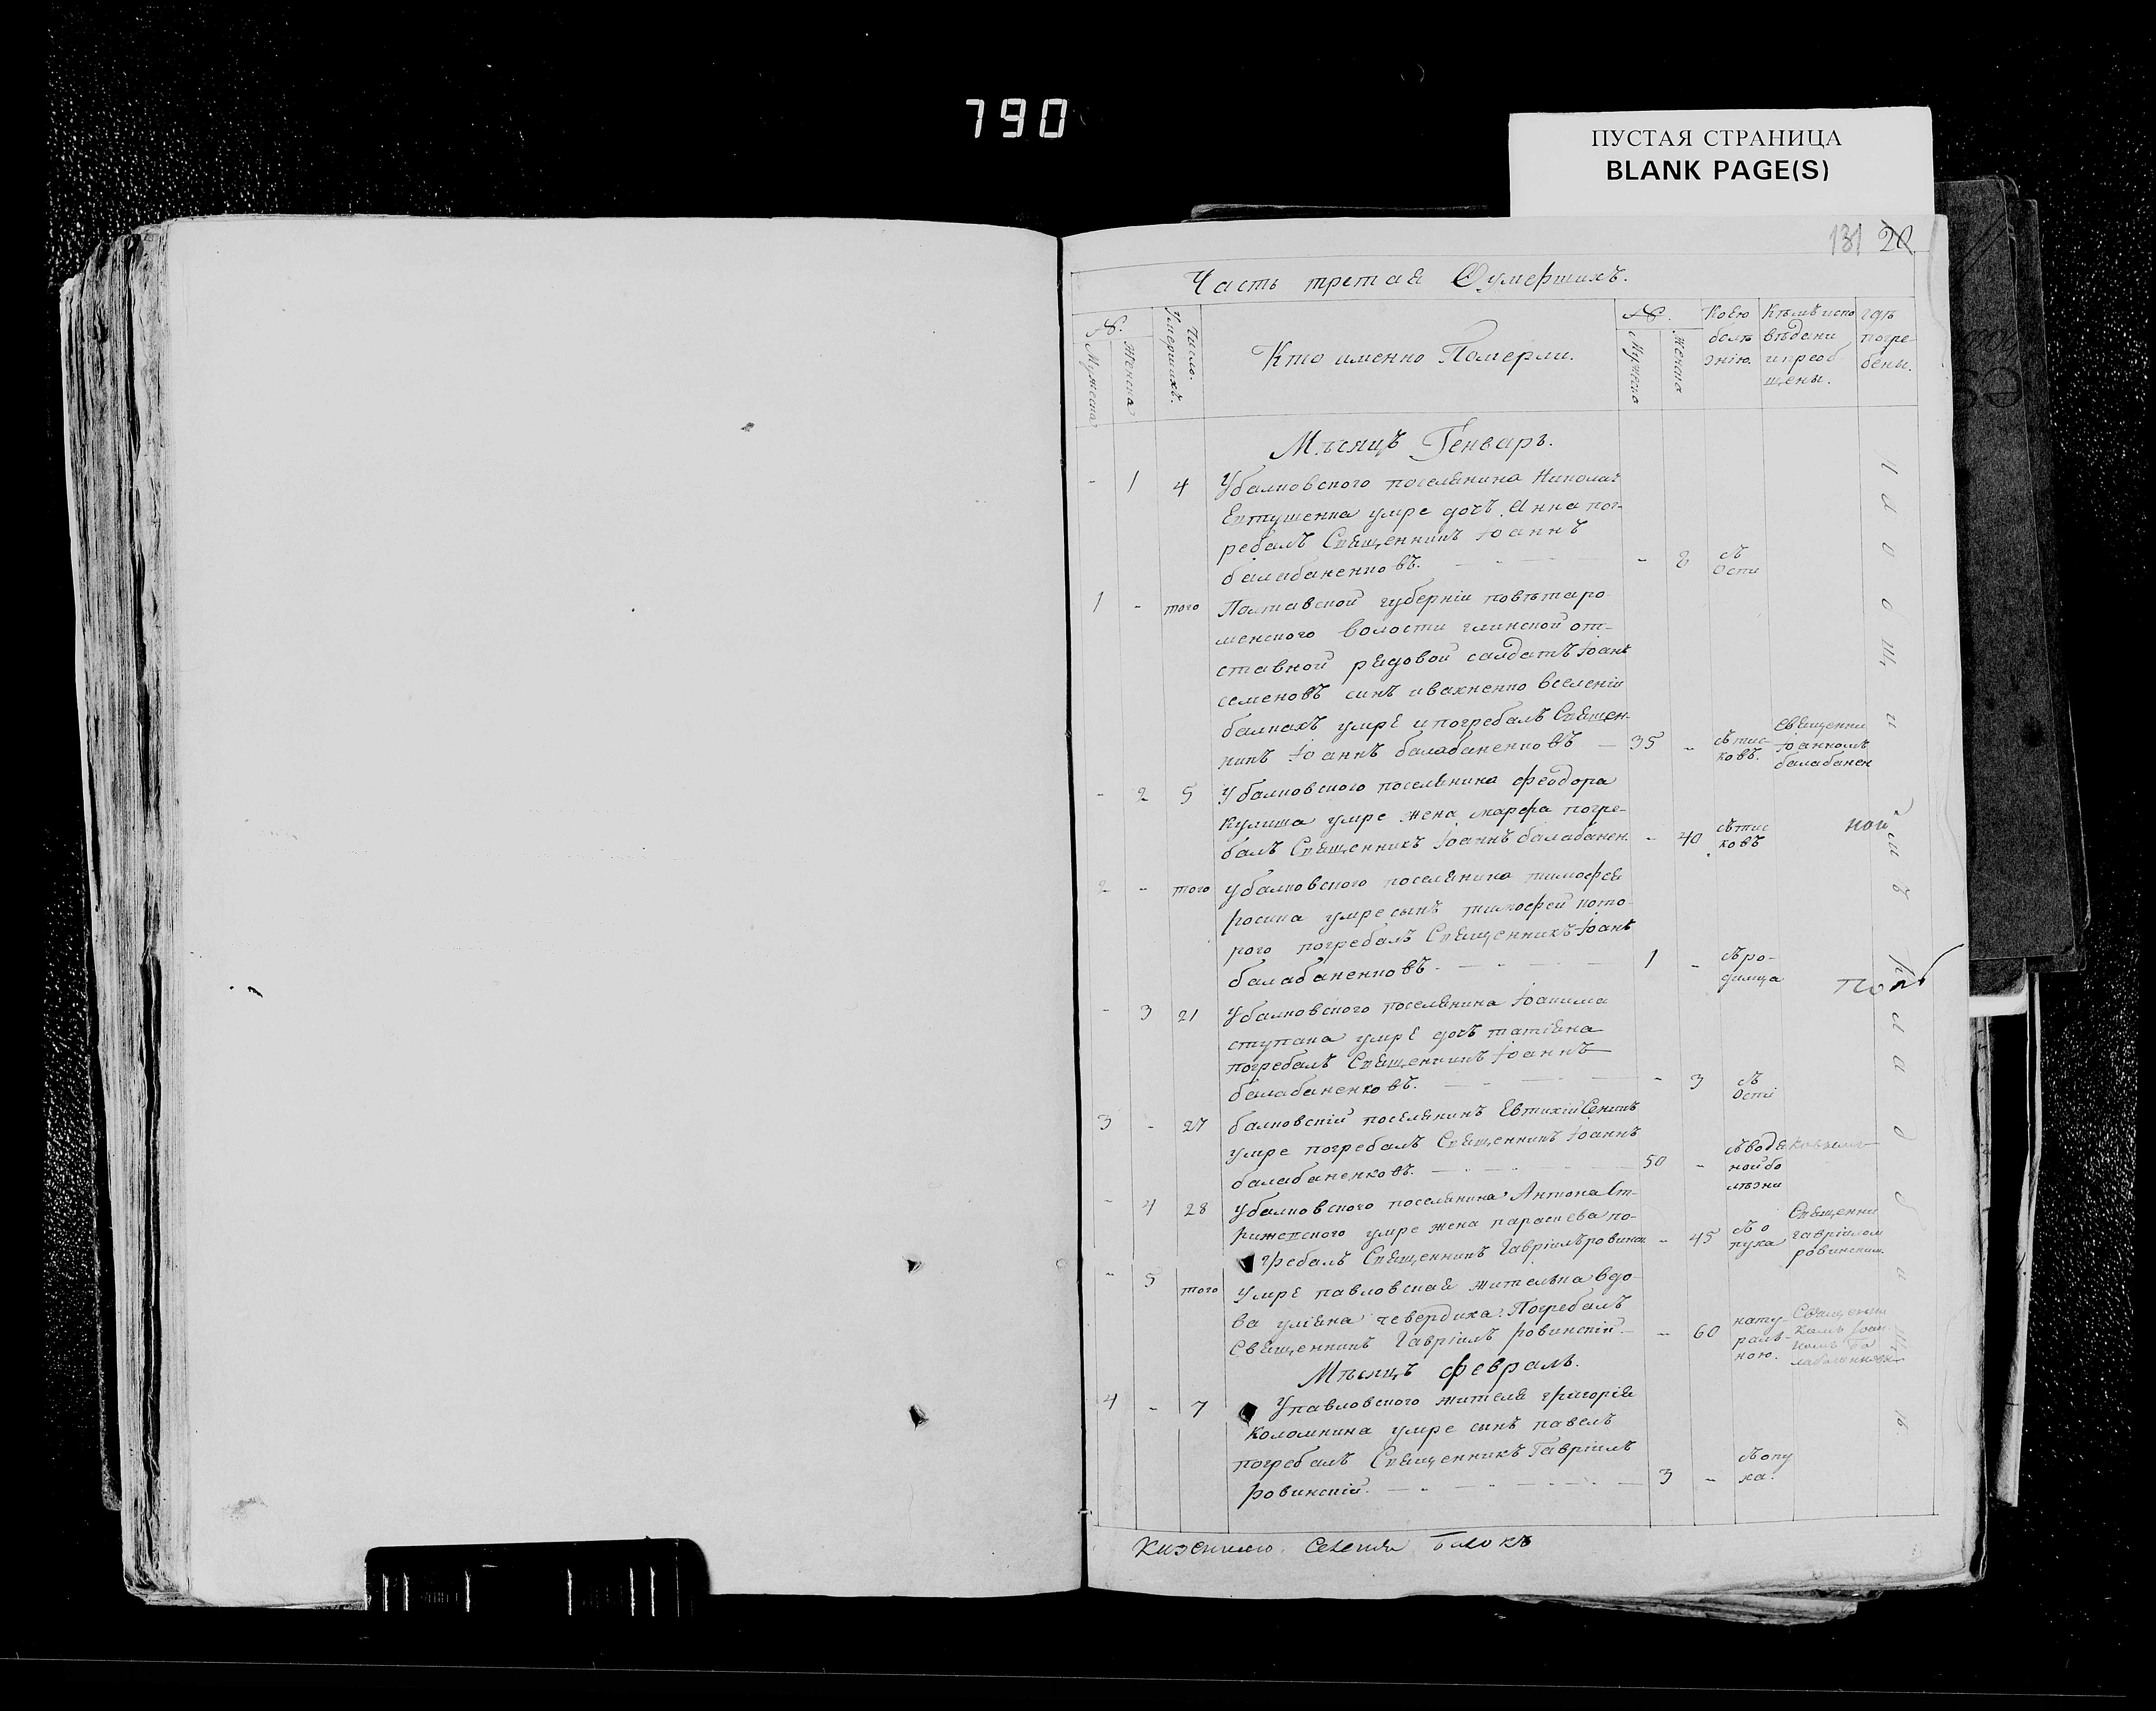 790
ПУСТАЯ СТРАНИЦА
BLANK PAGE(S)
131 20
Часть третая Оумершихъ.
№.
Мужеска
Женска
Число.
Умершихъ.
Кто именно Померли.
№.
Мужеска
Женска
Коею
болѣ
знію.
Кѣмъ испо
вѣдани
и приоб
щены.
гдѣ
погре
бены.
Мѣсяцъ Генварь.
- 1 4 Убалковского поселянина Николая
Евтушенка умре дочь Анна пог-
ребалъ Священникъ Іоаннъ
балабаненковъ. - 2 Ѣ
Оспи
1 - того Полтавской губерніи повѣта ро
менского волости глинской от-
ставной рядовой салдатъ Іоанъ
семеновъ синъ ивахненко вселеніи
балкахъ умре и погребалъ Священ-
никъ Іоаннъ балабаненковъ — 35 - тис-
ковъ.
Священни
Іоанномъ
балабанен
- 2 5 Убалковского поселянина феодора
кулиша умре жена марфа погре-
балъ Священникъ Іоаннъ балабанен. - 40 тис
ковъ
2 - того Убалковского поселянина тимофея
росина умре сынъ тимофей кото-
рого погребалъ Священникъ Іоанъ
балабаненковъ. 1 - ро-
димца
- 3 21 Убалковского поселянина Іоакима
ступака умре дочь татіяна
погребалъ Священникъ Іоаннъ
балабаненковъ. - 3 Ѣ
Оспі
3 - 27 балковскій поселянинъ Евтихій Сеникъ
умре погребалъ Священникъ Іоаннъ
балабаненковъ. 50 - водя
ной бо
лѣзни
- 4 28 Убалковского поселянина Антона Ст-
рижевского умре жена параскева по-
гребалъ Священникъ Гавріилъ ровинск. - 45 о
пуха
Священни
гавріилом
ровинским.
- 5 того Умре павловская жителька вдо-
ва уліяна чевердиха. Погребалъ
Священникъ Гавріилъ ровинскій. - 60 нату-
раль-
ною.
Священни
комъ Іоан
номъ ба
лабаненковы
Мѣсяцъ февраль.
4 - 7 Упавловского жителя григорія
коломкина умре сынъ павелъ
погребалъ Священникъ Гавріилъ
ровинскій. 3 - опу
ха.
селенія Балокъ